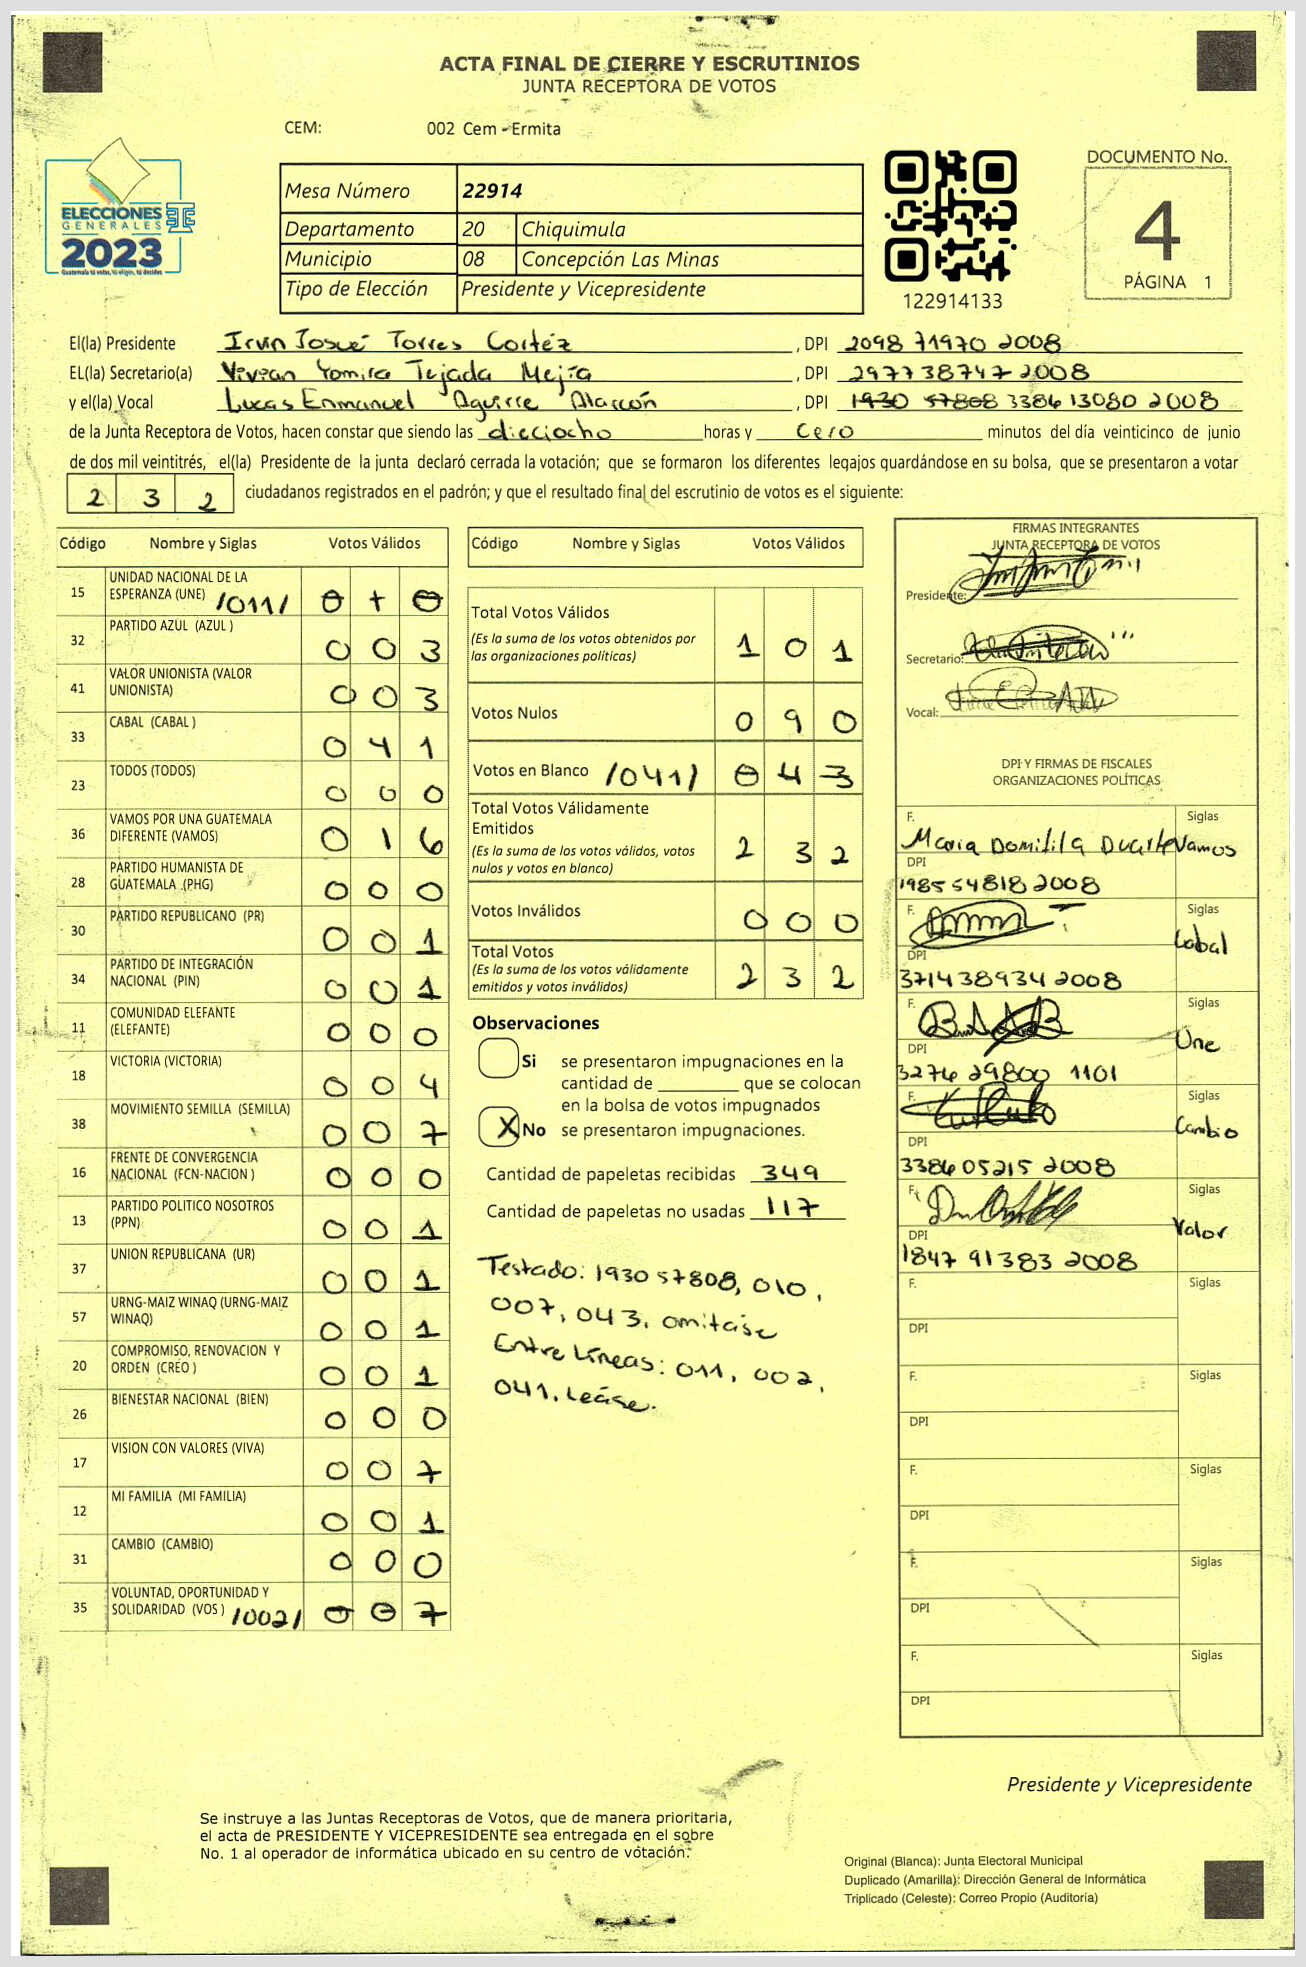 ACTA FINAL DE CIERRE Y ESCRUTINIOS
JUNTA RECEPTORA DE VOTOS
CEM: 002 Cem - Ermita
ELECCIONES
GENERALES
2023
Guatemala tú votas, tú eliges, tú decides
Mesa Número 22914
Departamento 20 Chiquimula
Municipio 08 Concepción Las Minas
Tipo de Elección Presidente y Vicepresidente
122914133
DOCUMENTO No.
4
PÁGINA 1
El(la) Presidente Irvin Josué Torres Cortéz , DPI 2098 71970 2008
EL(la) Secretario(a) Vivian Yomira Tejada Mejía , DPI 2977 38747 2008
y el(la) Vocal Lucas Enmanuel Aguirre Alarcón , DPI 1930 57808 3386 13080 2008
de la Junta Receptora de Votos, hacen constar que siendo las dieciocho horas y cero minutos del día veinticinco de junio
de dos mil veintitrés, el(la) Presidente de la junta declaró cerrada la votación; que se formaron los diferentes legajos guardándose en su bolsa, que se presentaron a votar
2 3 2 ciudadanos registrados en el padrón; y que el resultado final del escrutinio de votos es el siguiente:
Código Nombre y Siglas Votos Válidos
15 UNIDAD NACIONAL DE LA
ESPERANZA (UNE) /011/ 0 1 0
32 PARTIDO AZUL (AZUL ) 0 0 3
41 VALOR UNIONISTA (VALOR
UNIONISTA) 0 0 3
33 CABAL (CABAL ) 0 4 1
23 TODOS (TODOS) 0 0 0
36 VAMOS POR UNA GUATEMALA
DIFERENTE (VAMOS) 0 1 6
28 PARTIDO HUMANISTA DE
GUATEMALA (PHG) 0 0 0
30 PARTIDO REPUBLICANO (PR) 0 0 1
34 PARTIDO DE INTEGRACIÓN
NACIONAL (PIN) 0 0 1
11 COMUNIDAD ELEFANTE
(ELEFANTE) 0 0 0
18 VICTORIA (VICTORIA) 0 0 4
38 MOVIMIENTO SEMILLA (SEMILLA) 0 0 7
16 FRENTE DE CONVERGENCIA
NACIONAL (FCN-NACION ) 0 0 0
13 PARTIDO POLITICO NOSOTROS
(PPN) 0 0 1
37 UNION REPUBLICANA (UR) 0 0 1
57 URNG-MAIZ WINAQ (URNG-MAIZ
WINAQ) 0 0 1
20 COMPROMISO, RENOVACION Y
ORDEN (CREO ) 0 0 1
26 BIENESTAR NACIONAL (BIEN) 0 0 0
17 VISION CON VALORES (VIVA) 0 0 7
12 MI FAMILIA (MI FAMILIA) 0 0 1
31 CAMBIO (CAMBIO) 0 0 0
35 VOLUNTAD, OPORTUNIDAD Y
SOLIDARIDAD (VOS ) /002/ 0 0 7
Código Nombre y Siglas Votos Válidos
Total Votos Válidos
(Es la suma de los votos obtenidos por
las organizaciones políticas) 1 0 1
Votos Nulos 0 9 0
Votos en Blanco /041/ 0 4 3
Total Votos Válidamente
Emitidos
(Es la suma de los votos válidos, votos
nulos y votos en blanco) 2 3 2
Votos Inválidos 0 0 0
Total Votos
(Es la suma de los votos válidamente
emitidos y votos inválidos) 2 3 2
Observaciones
Si se presentaron impugnaciones en la
cantidad de ________ que se colocan
en la bolsa de votos impugnados
X No se presentaron impugnaciones.
Cantidad de papeletas recibidas 349
Cantidad de papeletas no usadas 117
Testado: 1930 57808, 010,
007, 043, omitáse
Entre Líneas: 011, 002,
041. Leáse.
FIRMAS INTEGRANTES
JUNTA RECEPTORA DE VOTOS
Presidente:
Secretario:
Vocal:
DPI Y FIRMAS DE FISCALES
ORGANIZACIONES POLÍTICAS
F. Siglas
Maria Domitila Duarte Vamos
DPI
1985 54818 2008
F. Siglas
Cabal
DPI
3714 38934 2008
F. Siglas
Une
DPI
3276 29800 1101
F. Siglas
Cambio
DPI
3386 05215 2008
F. Siglas
Valor
DPI
1847 91383 2008
F. Siglas
DPI
F. Siglas
DPI
F. Siglas
DPI
F. Siglas
DPI
F. Siglas
DPI
Presidente y Vicepresidente
Se instruye a las Juntas Receptoras de Votos, que de manera prioritaria,
el acta de PRESIDENTE Y VICEPRESIDENTE sea entregada en el sobre
No. 1 al operador de informática ubicado en su centro de votación.
Original (Blanca): Junta Electoral Municipal
Duplicado (Amarilla): Dirección General de Informática
Triplicado (Celeste): Correo Propio (Auditoría)